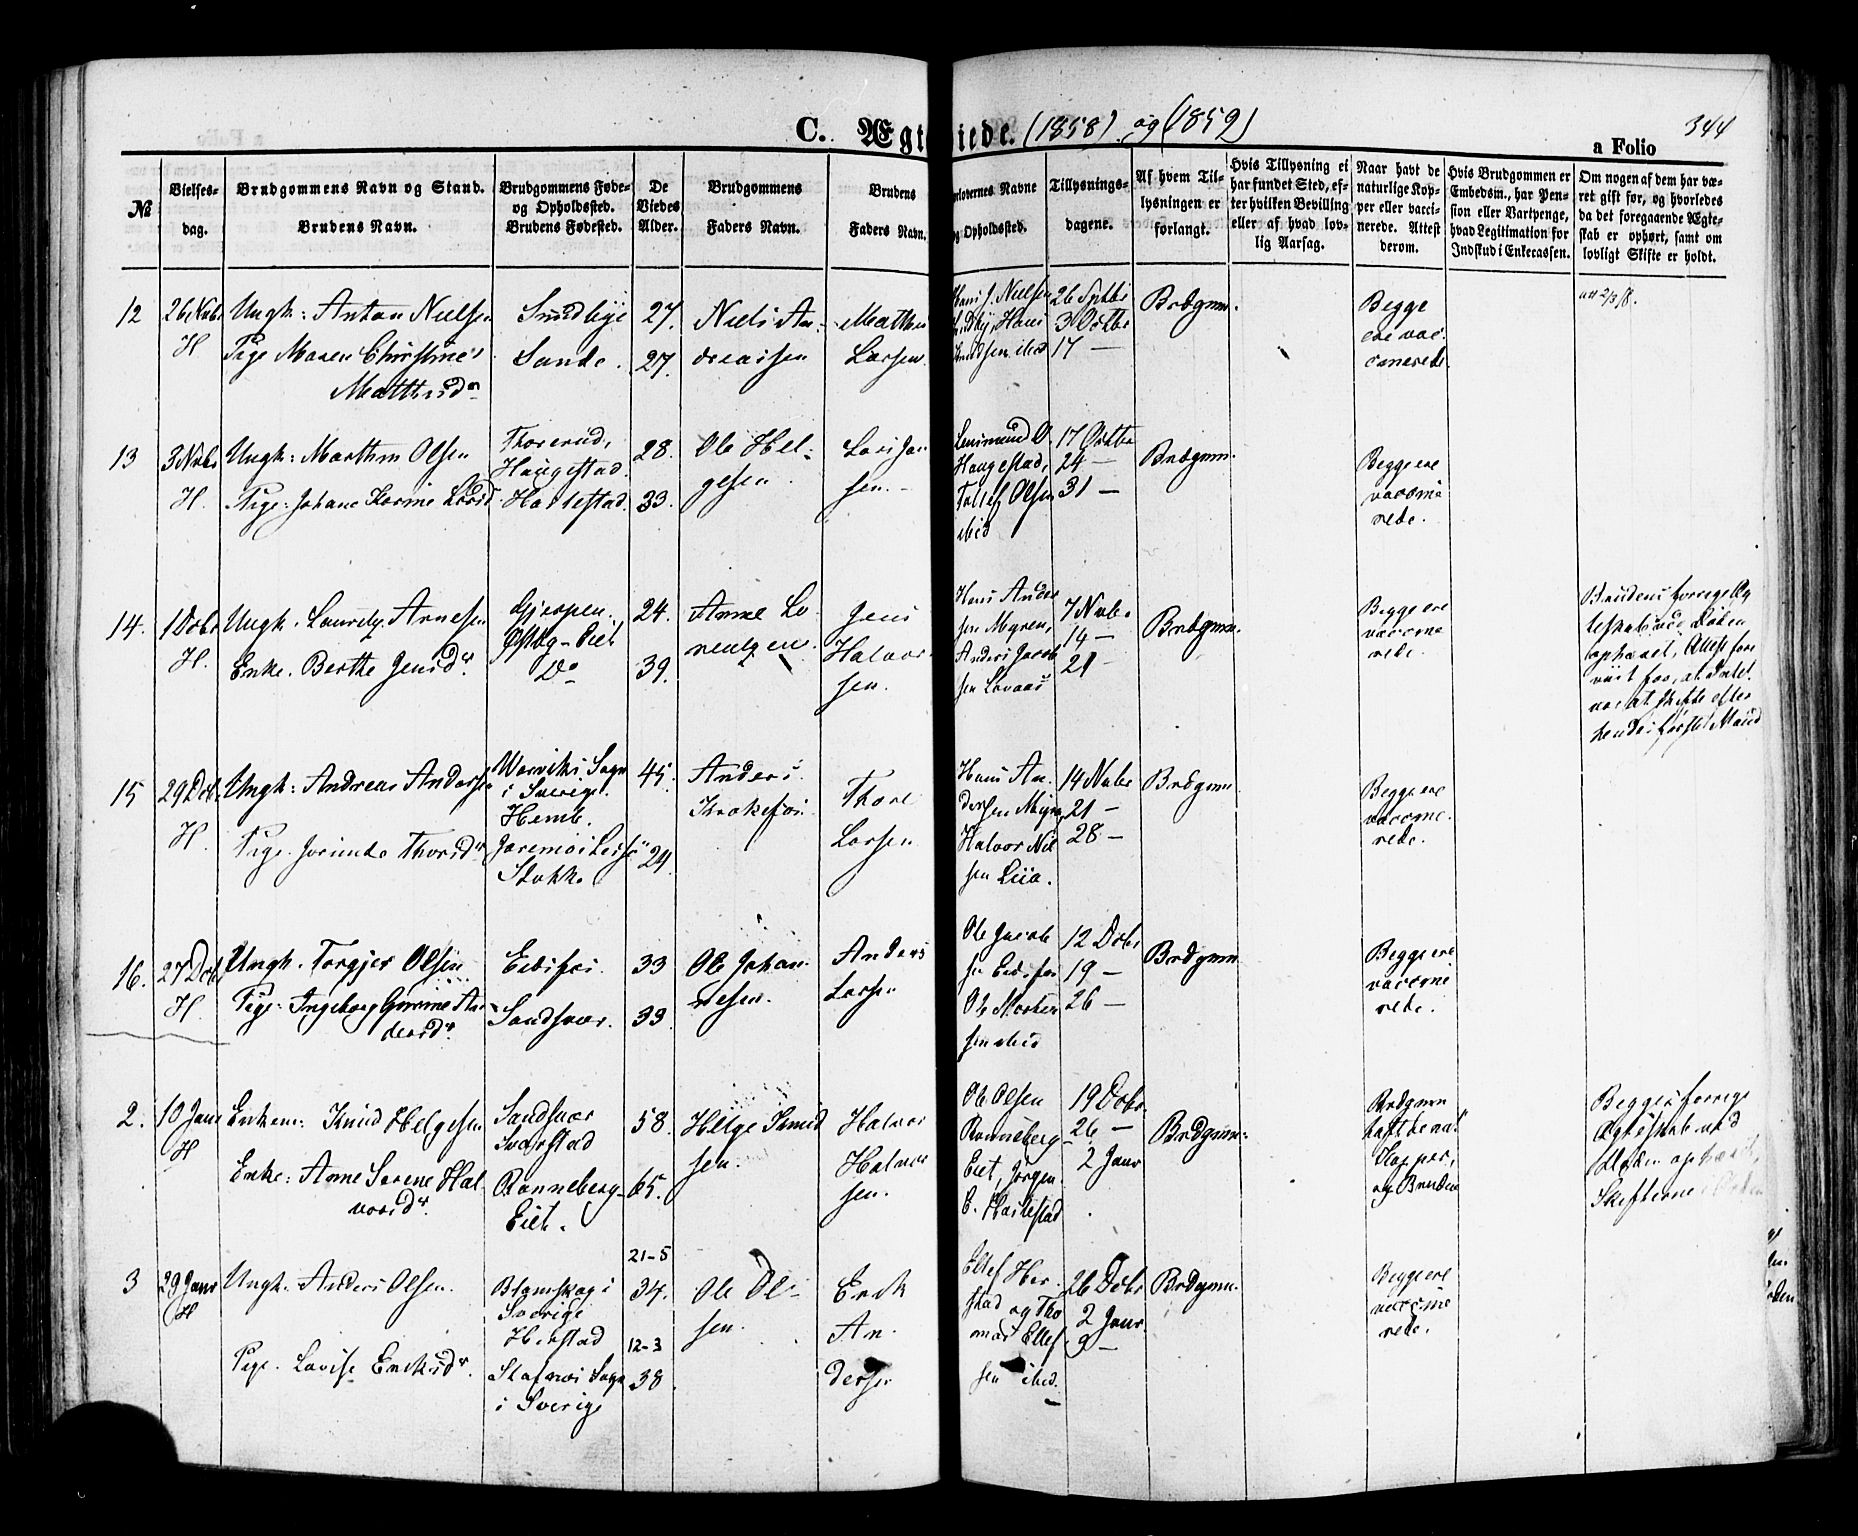 C. Ægt iede. (1858) og (1859)
344
a Folio
No
Vielses-
dag.
Brudgommens Navn og Stand.
Brudens Navn.
Brudgommens Føde-
og Opholdssted.
Brudens Fødested.
De
Viedes
Alder.
Brudgommens
Faders Navn.
Brudens
Faders Navn.
rlovernes Navne
og Opholdssted.
Tillysnings-
dagene.
Af hvem Til-
lysningen er
forlangt.
Hvis Tillysning ei
har fundet Sted, ef-
ter hvilken Bevilling
eller af hvad lov-
lig Aarsag.
Naar havt de
naturlige Kop-
per eller vacci-
nerede. Attest
derom.
Hvis Brudgommen er
Embedsm., har Pen-
sion eller Vartpenge,
hvad Legitimation for
Indskud i Enkecassen.
Om nogen af dem har væ-
ret gift før, og hvorledes
da det foregaaende Ægte-
skab er ophørt, samt om
lovligt Skifte er holdt.
12
26 Nvbr
H
Ungk: Anton Nielsen
Pige Maren Christine
Matthisdr
Sundbye
Sande.
27.
27.
Niels An-
dreassen
Matthis
Larsen
Hans J. Nielsen
Hans
Knudsen ibid
26 Sptbr
3 Octbr
17 —
Brdgmn.
Begge
ere vac-
cinerede.
13
3 Nvbr
H.
Ungk: Marthin Olsen
Pige: Johane Karine Larsd.
Thorerud,
Haugestad.
Hassestad.
28.
33.
Ole Hel-
gesen.
Lars Jan
sen.
Haugestad,
Tollef Olsen
ibid
17 Octbr
24 —
31 —
Brdgmn.
Begge ere
vaccine
rede.
14.
1 Dcbr
H.
Ungk. Lauritz Arnesen
Enke. Berthe Jensdr.
Gjerpen.
Do
24.
39.
Arne La
rentzen.
Jens
Halvor-
sen.
Hans Ander
sen Myren,
Anders Jacob
sen Lovaas
7 Nvbr
14 —
21
Brdgmn.
Begge ere
vaccine
rede.
Brudens forrige Æg
teskab ved Døden
ophævet, Attest fore
viist for, at Intet
var at skifte efter
hendes første Mand
15
29 Dcbr
H.
Ungk: Andreas Anderse
Pige. Jorinde Thorsdr
Sogn
i Sverige.
Hemb.
Stokke
45.
24.
Anders
Krokefos
Thore
Larsen
Hans An-
dersen Myra,
Halvor Niel
sen Liia.
14 Nvbr
21 —
28 —
Brdgmn
Begge ere
vaccine-
rede.
16.
27 Dcbr
H.
Ungk. Torgjer Olsen
Pige. Ingeborg Gurine An-
dersdr.
Eidsfos.
Sandsvær.
33
33
Ole Johan-
nesen.
Anders
Larsen
Ole Jacob
sen Eidsfos
Ole Morten
sen ibid
12 Dcbr
19 —
26 —
Brdgmn
Begge ere
vaccine
rede.
2.
10 Janr
H
Enkem: Knud Helgesen
Enke: Anne Serene Hal-
vorsdr.
Sandsvær
Svarstad
Ranneberg-
Eiet.
58.
65.
Helge Knud
sen.
Halvor
Halvor
sen.
Ole Olsen
Ranneberg-
Eiet, Jørgen
E. Hassestad
19 Dcbr
26 —
2 Janr
Brdgmn.
Brdgmn
havt de nat
Kopper,
og Bruden
Begges forrige
Ægteskab ved
Døden ophævet,
Skifterne i Orden
3
29 Janr
H
Ungk. Anders Olsen.
Pige. Lovise Eriksdr.
Blomskog i
Sverige
Herstad
Sogn
i Sverige
21-5
34.
12-3
38.
Ole Ol-
sen.
Erik
An-
dersen
Ellef Her-
stad og Tho
mas Ellef
sen ibid.
26 Dcbr
2 Janr
9 —
Brdgmn.
Begge ere
vaccine
rede.